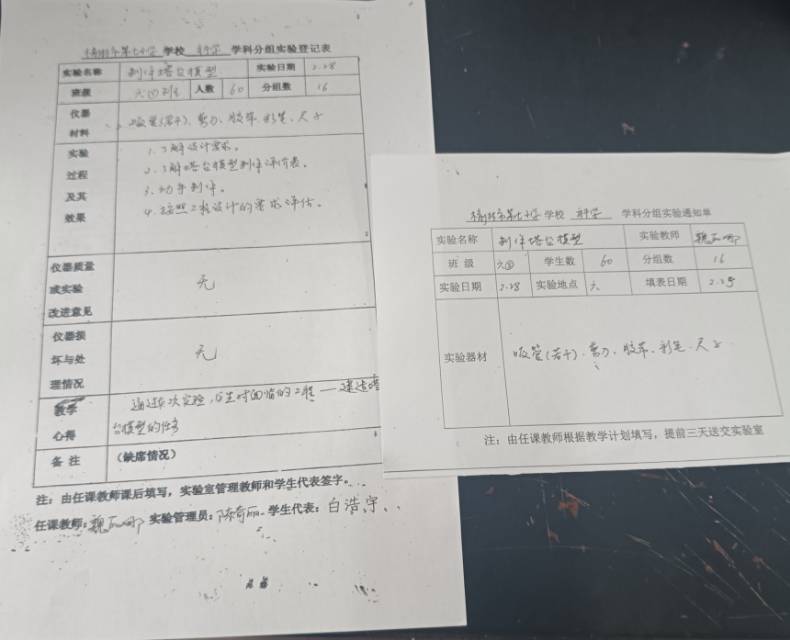 榆林市第七小学 学校 科学 学科分组实验登记表
实验名称 制作塔台模型 实验日期 2.28
班级 六④班 人数 60 分组数 16
仪器材料 吸管(若干)、剪刀、胶带、彩笔、尺子
实验过程及其效果
1.了解设计需求。
2.了解塔台模型制作评价表。
3.动手制作。
4.按照工程设计的要求评估。
仪器质量或实验改进意见 无
仪器损坏与处理情况 无
教学心得 通过本次实验,学生对面临的工程——建造塔
台模型的任务
备注 (缺席情况)
注:由任课教师课后填写,实验室管理教师和学生代表签字。
任课教师: 实验管理员: 学生代表:白浩宇
榆林市第七小学 学校 科学 学科分组实验通知单
实验名称 制作塔台模型 实验教师
班级 六④ 学生数 60 分组数 16
实验日期 2.28 实验地点 六 填表日期 2.25
实验器材 吸管(若干)、剪刀、胶带、彩笔、尺子
注:由任课教师根据教学计划填写,提前三天送交实验室